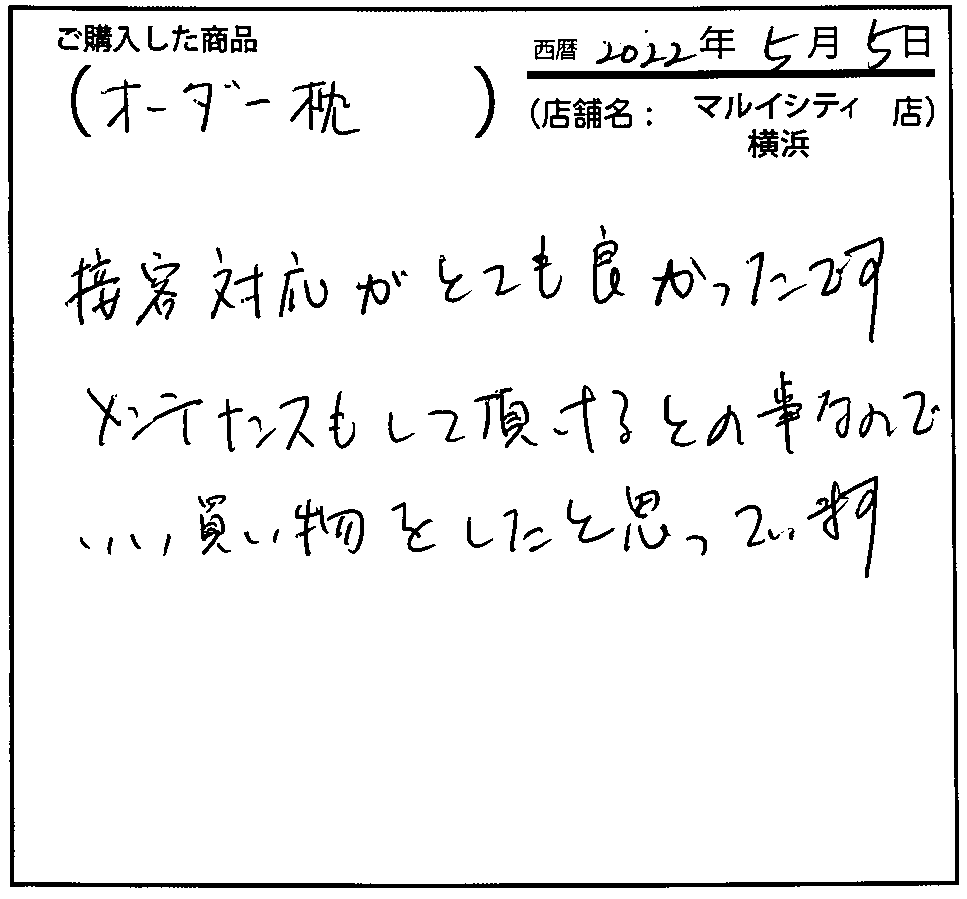 ご購入した商品
(オーダー枕)
西暦 2022年5月5日
(店舗名: マルイシティ 店)
横浜
接客対応がとても良かったです
メンテナンスもして頂けるとの事なので
いい買い物をしたと思っています